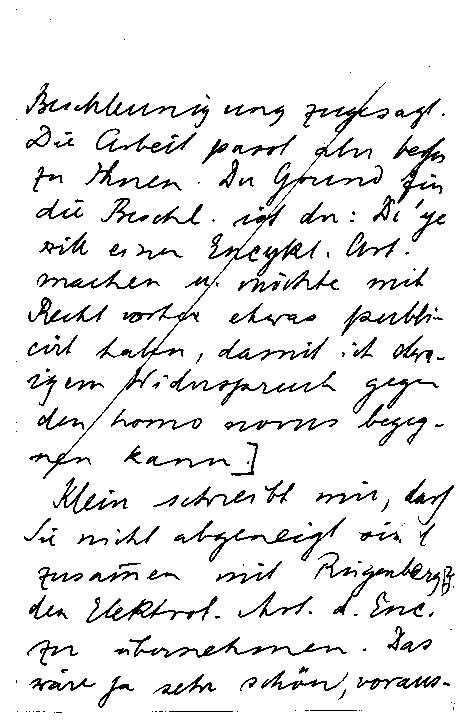 Beschleunigung zugesagt.
Die Arbeit passt aber besser
zu Ihnen. Der Grund für
die Beschl. ist der: Debye
will einen Encykl. Art.
machen u. möchte mit
Recht vorher etwas publi-
cirt haben, damit ich etwa-
igem Widerspruch gegen
den homo novus begeg-
nen kann.]
Klein schreibt mir, dass
Sie nicht abgeneigt sind
zusammen mit
den Elektrol. Art. d. Enc.
zu übernehmen. Das
wäre ja sehr schön, voraus-